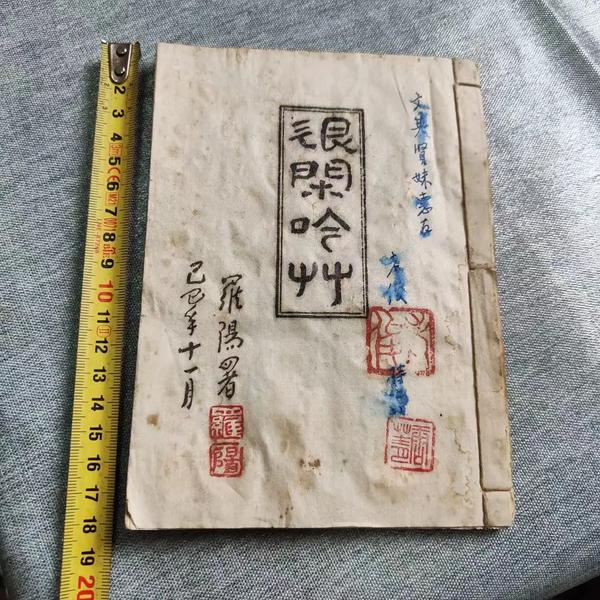 退閑吟艸
贤妹惠存
羅陽署
己巳年十一月
羅陽
2
3
4
5
6
7
8
9
10
11
12
13
14
15
16
17
18
19
20